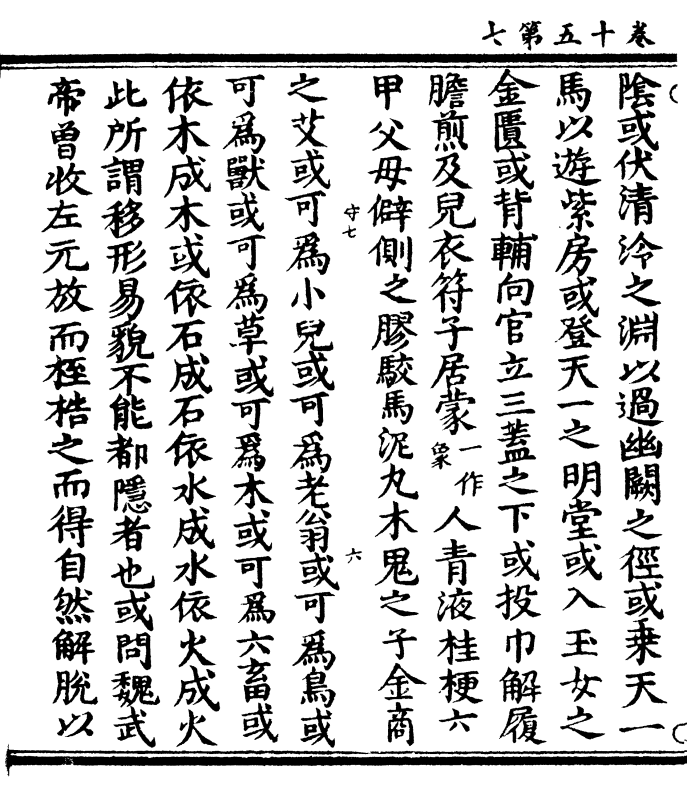 卷十五第七
陰或伏清泠之淵以過幽闕之徑或乗天一
馬以遊紫房或登天一之明堂或入玉女之
金匱或背輔向官立三蓋之下或投巾解履
膽煎及兒衣符子居蒙一作象人青液桂梗六
甲父母僻側之膠駮馬泥丸木鬼之子金商
守七
之艾或可爲小兒或可爲老翁或可爲鳥或
六
可爲獸或可爲草或可爲木或可爲六畜或
依木成木或依石成石依水成水依火成火
此所謂移形易貌不能都隱者也或問魏武
帝曾收左元放而桎梏之而得自然解脫以